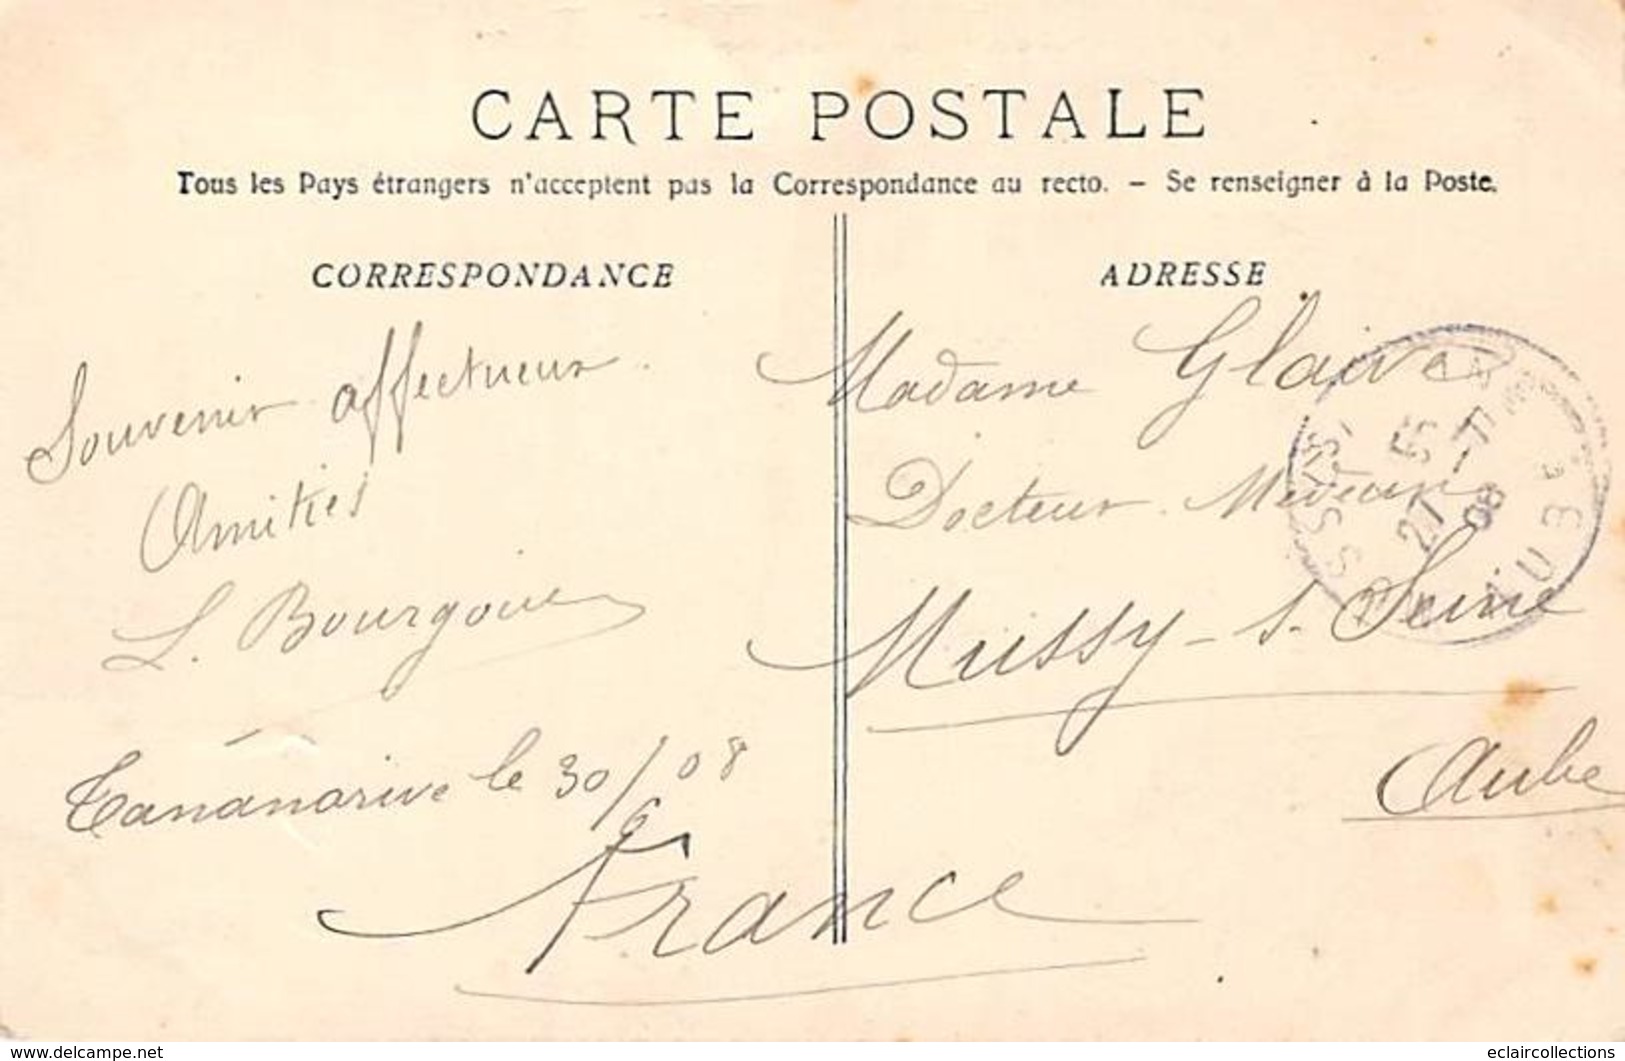 CARTE POSTALE
Tous les Pays étrangers n'acceptent pas la Correspondance au recto. — Se renseigner à la Poste.
CORRESPONDANCE
Souvenir affectueux
Amitiés
L. Bourgoin
Tananarive le 30/6 08
ADRESSE
Madame Glaive
Docteur Médecin
Mussy-s-Seine
Aube
France
27 08
AUBE
www.delcampe.net
eclaircollections